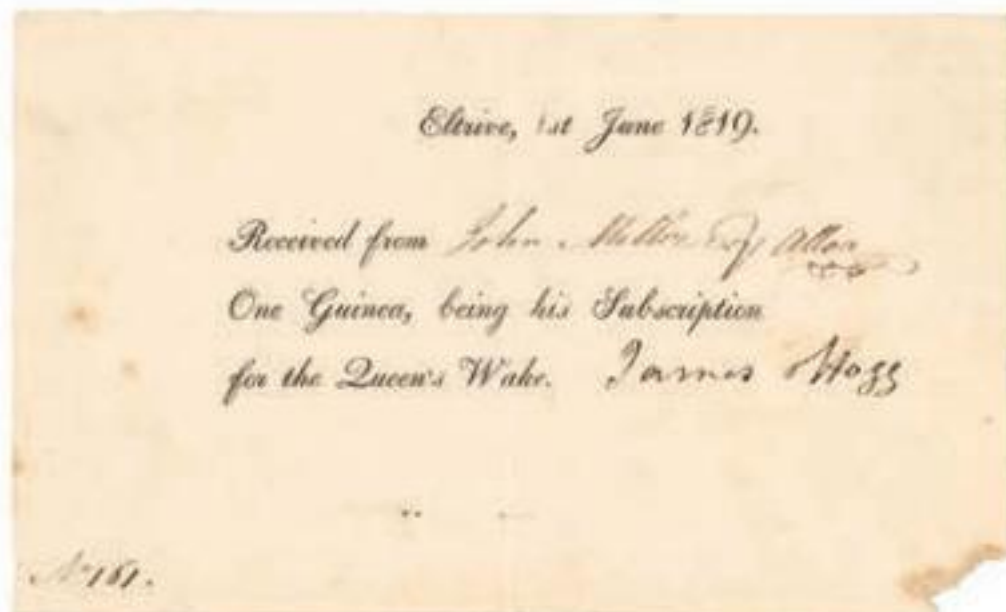 Eltrive, 1st June 1819.
Received from John
One Guinea, being his Subscription
for the Queen's Wake. James Hogg
No 161.